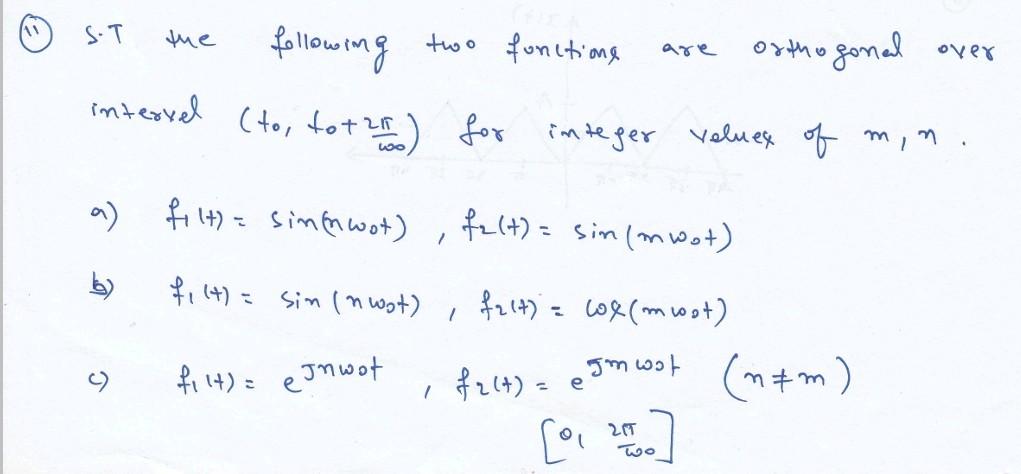 11 S.T the following two functions are orthogonal over
interval (t0, t0+2π/ω0) for integer values of m, n.
a) f1(t) = sin(nω0t), f2(t) = sin(mω0t)
b) f1(t) = sin(nω0t), f2(t) = cos(mω0t)
c) f1(t) = e^Jnω0t, f2(t) = e^Jmω0t (n≠m)
[0, 2π/ω0]